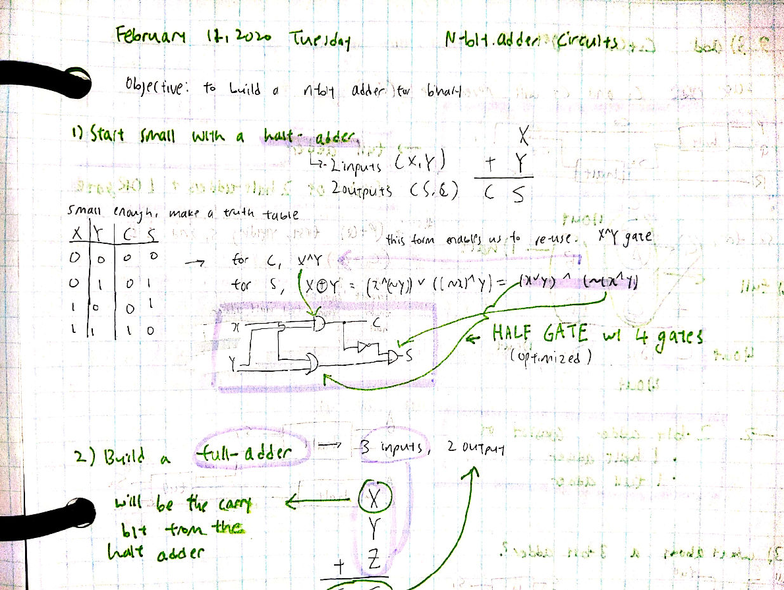 February 18, 2020 Tuesday N-bit adder Circuits
Objective: to build a n-bit adder for binary
1) Start small with a half-adder,
↳ 2 inputs (X,Y)
2 outputs (S,C)
X
+ Y
C S
Small enough, make a truth table
X Y C S
0 0 0 0
0 1 0 1
1 0 0 1
1 1 1 0
this form enables us to re-use X^Y gate
→ for C, X^Y
for S, (X⊕Y = (X^(~Y)) ∨ ((~X)^Y) = (X∨Y) ^ (~(X^Y))
X C
Y S
← HALF GATE w/ 4 gates
(optimized)
2) Build a full-adder → 3 inputs, 2 output
will be the carry
bit from the
half adder
X
Y
+ Z